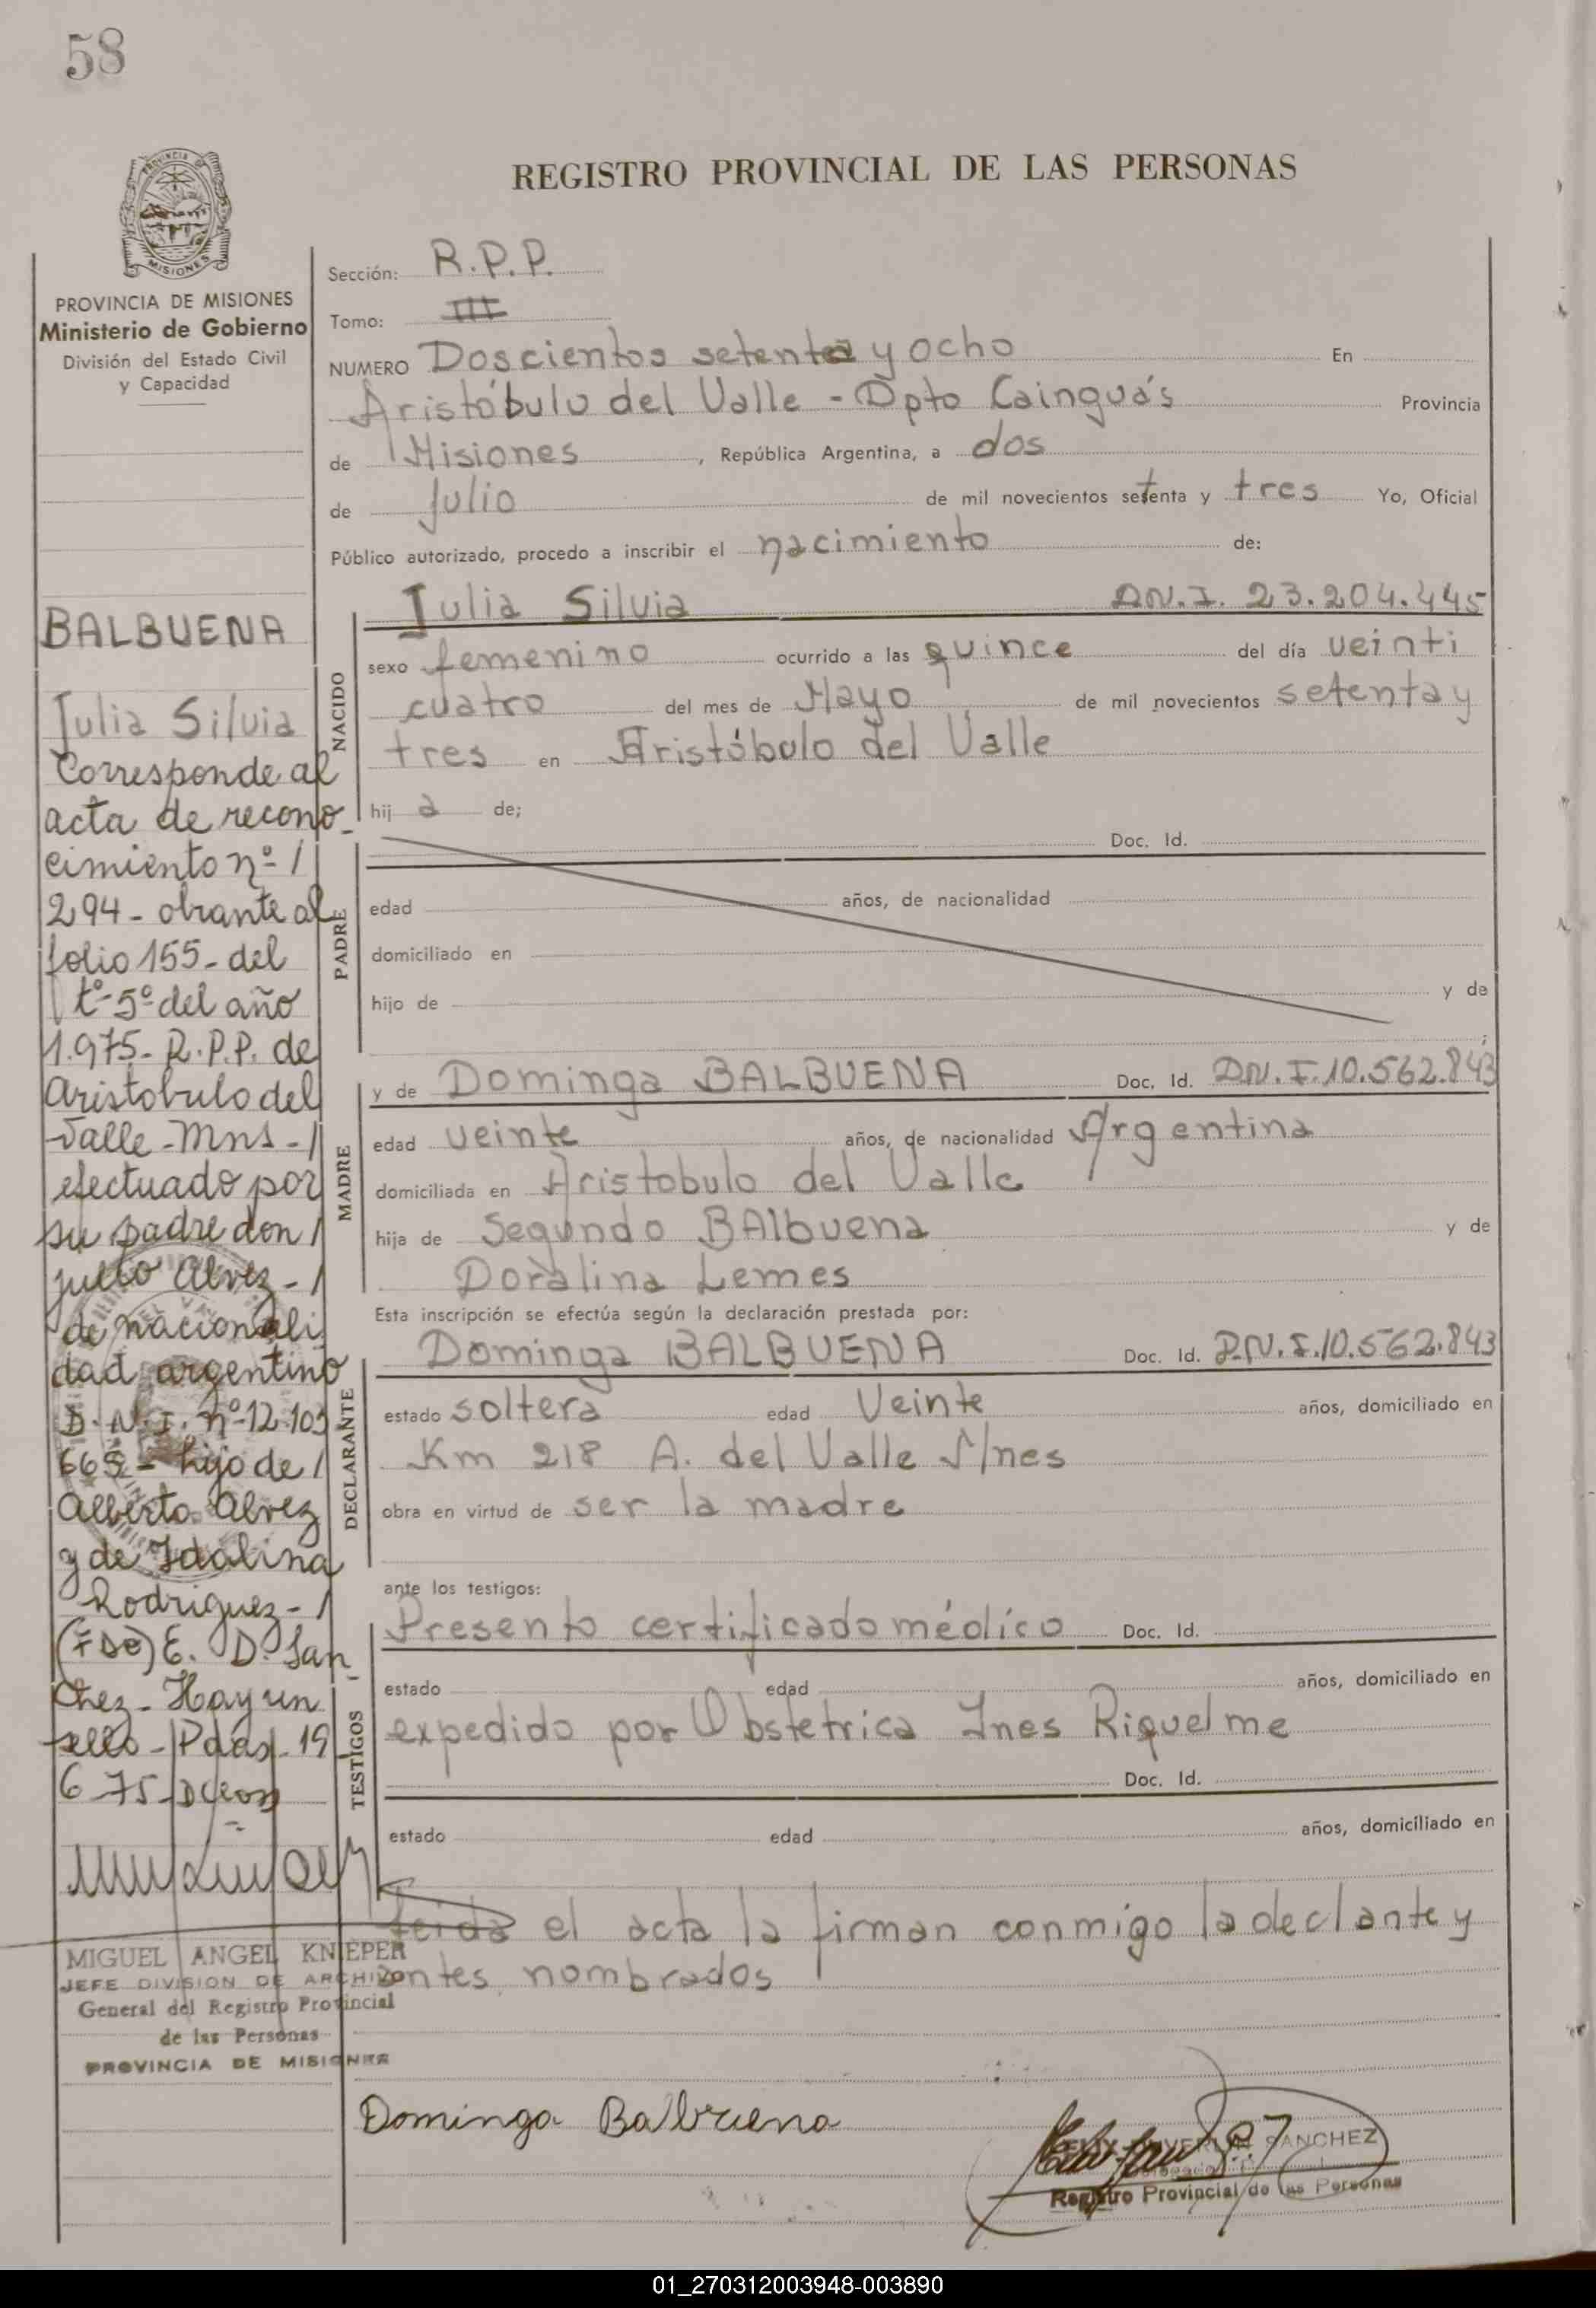 58
REGISTRO PROVINCIAL DE LAS PERSONAS
PROVINCIA DE
MISIONES
PROVINCIA DE MISIONES
Ministerio de Gobierno
División del Estado Civil
y Capacidad
Sección: R.P.P.
Tomo: III
NUMERO Doscientos setenta y ocho En
Aristóbulo del Valle - Dpto Cainguás Provincia
de Misiones, República Argentina, a dos
de Julio de mil novecientos setenta y tres Yo, Oficial
Público autorizado, procedo a inscribir el nacimiento de:
BALBUENA
Julia Silvia
Corresponde al
acta de recono_
cimiento nº /
294 - obrante al
folio 155 - del
tº - 5º del año
1.975 - R.P.P. de
Aristobulo del
Valle - Mns - /
efectuado por
su padre don /
Julio Alvez - /
de nacionali
dad argentino
D.N.I. nº 12.103
665 - hijo de /
Alberto Alvez
y de Idalina
Rodriguez - /
(Fdo) E. D. San_
chez - Hay un
sello - Pdas - 19
6 75
MIGUEL ANGEL KNIEPER
JEFE DIVISION DE ARCHIVO
General del Registro Provincial
de las Personas
PROVINCIA DE MISIONES
NACIDO
Julia Silvia D.N.I. 23.204.445
sexo femenino ocurrido a las quince del día veinti
cuatro del mes de Mayo de mil novecientos setenta y
tres en Aristóbulo del Valle
hij a de;
PADRE
Doc. Id.
edad años, de nacionalidad
domiciliado en
hijo de y de
;
MADRE
y de Dominga BALBUENA Doc. Id. D.N.I. 10.562.843
edad veinte años, de nacionalidad Argentina
domiciliada en Aristobulo del Valle
hija de Segundo BAlbuena y de
Doralina Lemes
Esta inscripción se efectúa según la declaración prestada por:
DECLARANTE
Dominga BALBUENA Doc. Id. D.N.I. 10.562.843
estado soltera edad Veinte años, domiciliado en
Km 218 A. del Valle M/nes
obra en virtud de ser la madre
ante los testigos:
TESTIGOS
Presento certificado médico Doc. Id.
estado edad años, domiciliado en
expedido por Obstetrica Ines Riquelme
Doc. Id.
estado edad años, domiciliado en
Leida el acta la firman conmigo la declante y
antes nombrados
Dominga Balbuena
SANCHEZ
Registro Provincial de las Personas
01_270312003948-003890